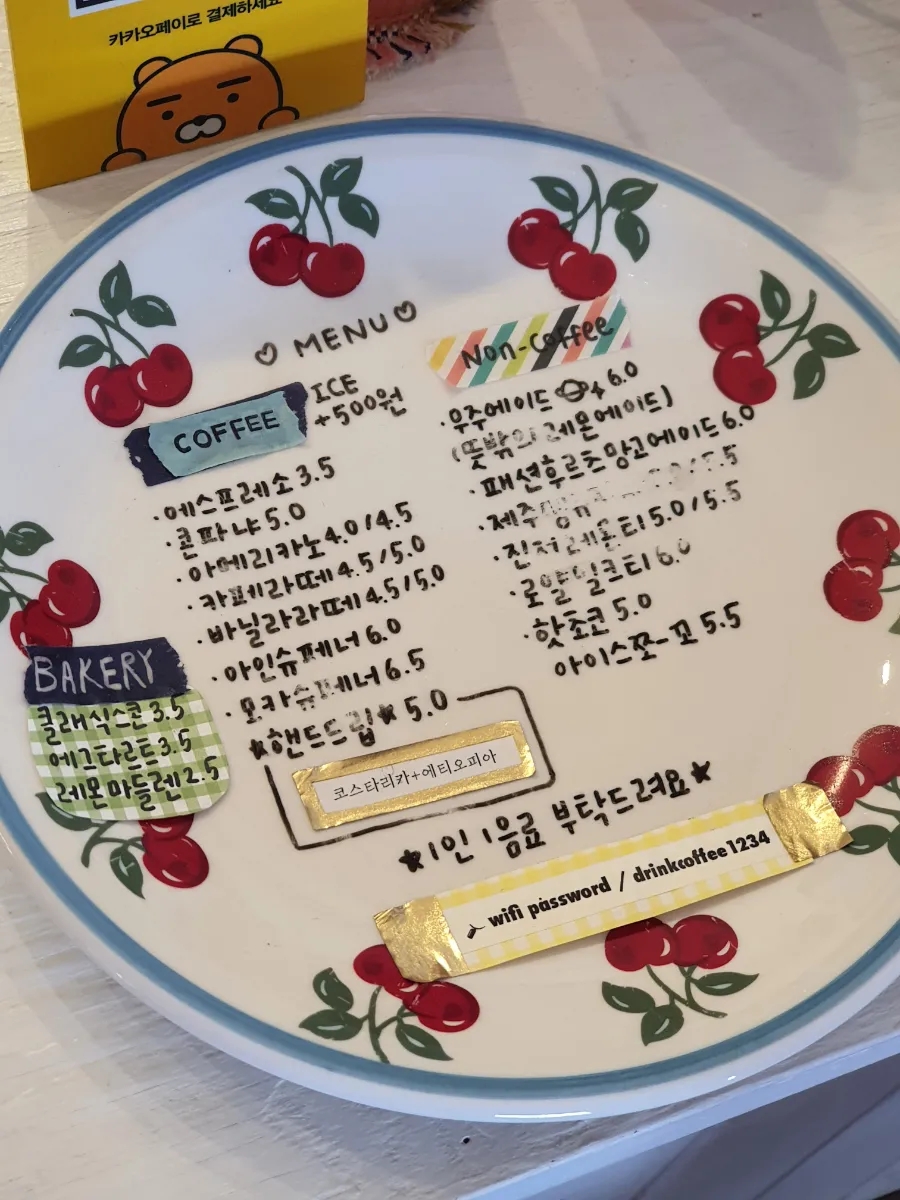 카카오페이로 결제하세요
♡ MENU ♡
COFFEE
ICE
+500원
·에스프레소 3.5
·콘파냐 5.0
·아메리카노 4.0/4.5
·카페라떼 4.5/5.0
·바닐라라떼 4.5/5.0
·아인슈페너 6.0
·모카슈페너 6.5
★핸드드립★ 5.0
코스타리카+에티오피아
Non-coffee
·우주에이드 6.0
(뜻밖의 레몬에이드)
·패션후르츠망고에이드 6.0
·제주
·진저레몬티 5.0/5.5
·로얄밀크티 6.0
·핫초코 5.0
아이스쪼-꼬 5.5
BAKERY
클래식스콘 3.5
에그타르트 3.5
레몬마들렌 2.5
★1인 1음료 부탁드려요★
wifi password / drinkcoffee1234